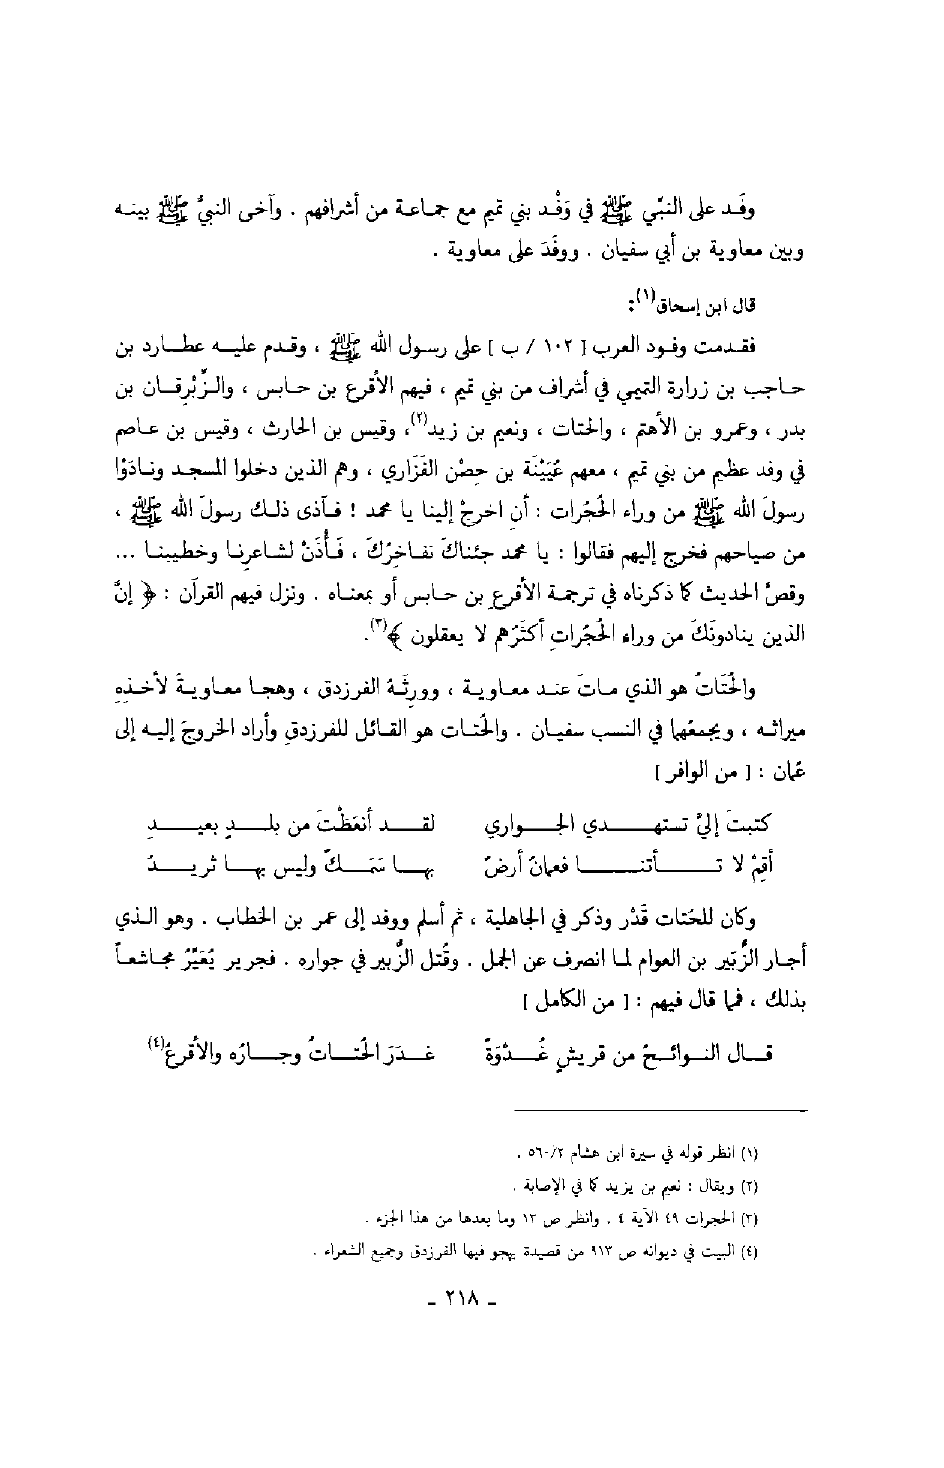 وفَد على النبّي ﷺ في وَفْد بني تميم مع جماعة من أشرافهم . وآخى النبيُّ ﷺ بينه
وبين معاوية بن أبي سفيان . ووفَدَ على معاوية .
قال ابن إسحاق(١):
فقدمت وفود العرب [ ١٠٢ / ب ] على رسول الله ﷺ ، وقدم عليه عطارد بن
حاجب بن زرارة التميمي في أشراف من بني تميم ، فيهم الأقرع بن حابس ، والزِّبْرِقان بن
بدر ، وعمرو بن الأهتم ، والحتات ، ونعيم بن زيد(٢)، وقيس بن الحارث ، وقيس بن عاصم
في وفد عظيم من بني تميم ، معهم عُيَيْنَة بن حِصْن الفَزَاري ، وهم الذين دخلوا المسجد ونادَوْا
رسولَ الله ﷺ من وراء الحُجُرات : أنِ اخرجْ إلينا يا محمد ! فآذى ذلك رسولَ الله ﷺ ،
من صياحهم فخرج إليهم فقالوا : يا محمد جئناكَ نفاخِرُكَ ، فَأْذَنْ لشاعرِنا وخطيبنا ...
وقصَّ الحديث كما ذكرناه في ترجمة الأقرعِ بن حابس أو بمعناه . ونزل فيهم القرآن : ﴿ إنَّ
الذين ينادونَكَ من وراء الحُجُراتِ أكثَرُهم لا يعقلون ﴾(٣).
والحُتَاتُ هو الذي ماتَ عند معاوية ، وورِثَهُ الفرزدق ، وهجا معاويةَ لأخذِهِ
ميراثه ، ويجمعُهما في النسب سفيان . والحُتات هو القائل للفرزدقِ وأراد الخروجَ إليه إلى
عُمان : [ من الوافر ]
كتبتَ إليَّ تستهدي الجواري لقد أنعَظْتَ من بلدٍ بعيدِ
أقِمْ لا تأتنا فعمانُ أرضٌ بها سَمَكٌ وليس بها ثريدُ
وكان للحُتات قَدْر وذكر في الجاهلية ، ثم أسلم ووفد إلى عمر بن الخطاب . وهو الذي
أجار الزُّبَير بن العوام لما انصرف عن الجمل . وقُتل الزُّبير في جواره . فجرير يُعَيِّرُ مجاشعاً
بذلك ، فما قال فيهم : [ من الكامل ]
قال النوائحُ من قريشٍ غُدْوَةً غدَرَ الحُتاتُ وجارُه والأقرعُ(٤)
(١) انظر قوله في سيرة ابن هشام ٥٦٠/٢ .
(٢) ويقال : نعيم بن يزيد كما في الإصابة .
(٣) الحجرات ٤٩ الآية ٤ . وانظر ص ١٣ وما بعدها من هذا الجزء .
(٤) البيت في ديوانه ص ٩١٣ من قصيدة يهجو فيها الفرزدق وجميع الشعراء .
- ٢١٨ -